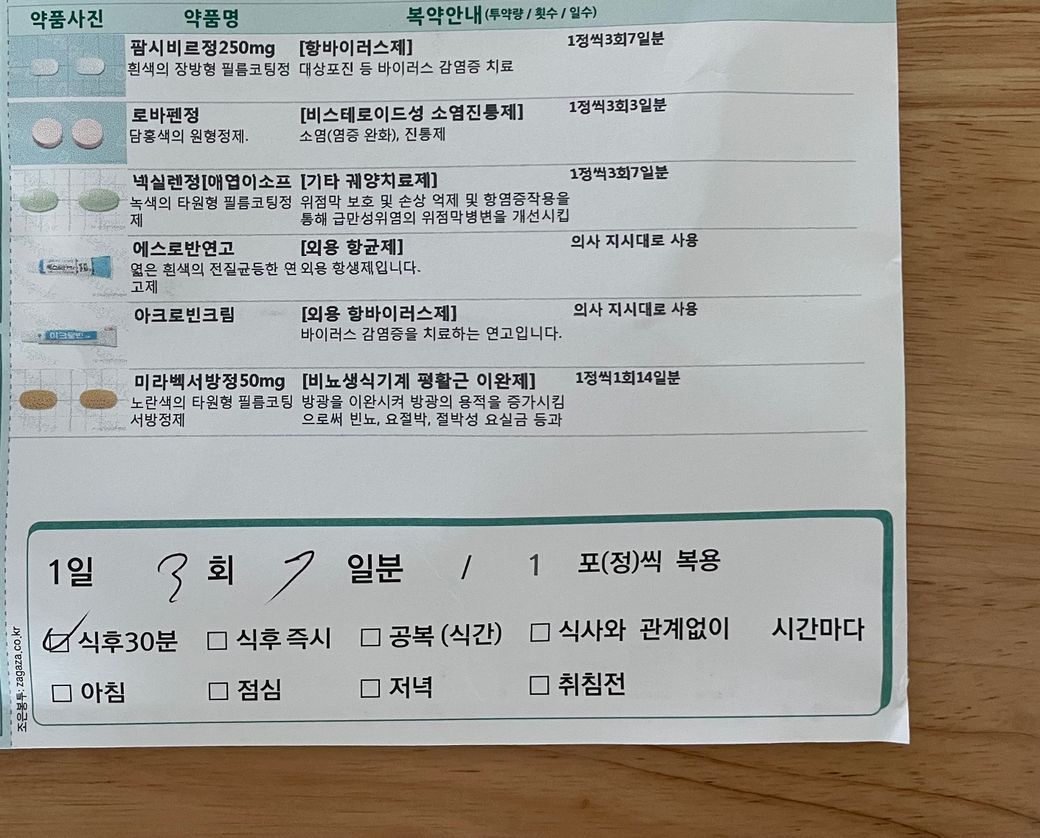 약품사진 약품명 복약안내(투약량 / 횟수 / 일수)
팜시비르정250mg [항바이러스제] 1정씩3회7일분
흰색의 장방형 필름코팅정 대상포진 등 바이러스 감염증 치료
로바펜정 [비스테로이드성 소염진통제] 1정씩3회3일분
담홍색의 원형정제. 소염(염증 완화), 진통제
넥실렌정[애엽이소프 [기타 궤양치료제] 1정씩3회7일분
녹색의 타원형 필름코팅정 위점막 보호 및 손상 억제 및 항염증작용을
제 통해 급만성위염의 위점막병변을 개선시킵
에스로반연고 [외용 항균제] 의사 지시대로 사용
엷은 흰색의 전질균등한 연 외용 항생제입니다.
고제
아크로빈크림 [외용 항바이러스제] 의사 지시대로 사용
바이러스 감염증을 치료하는 연고입니다.
미라벡서방정50mg [비뇨생식기계 평활근 이완제] 1정씩1회14일분
노란색의 타원형 필름코팅 방광을 이완시켜 방광의 용적을 증가시킴
서방정제 으로써 빈뇨, 요절박, 절박성 요실금 등과
1일 3 회 7 일분 / 1 포(정)씩 복용
식후30분 식후 즉시 공복 (식간) 식사와 관계없이 시간마다
아침 점심 저녁 취침전
조은봉투; zagaza.co.kr